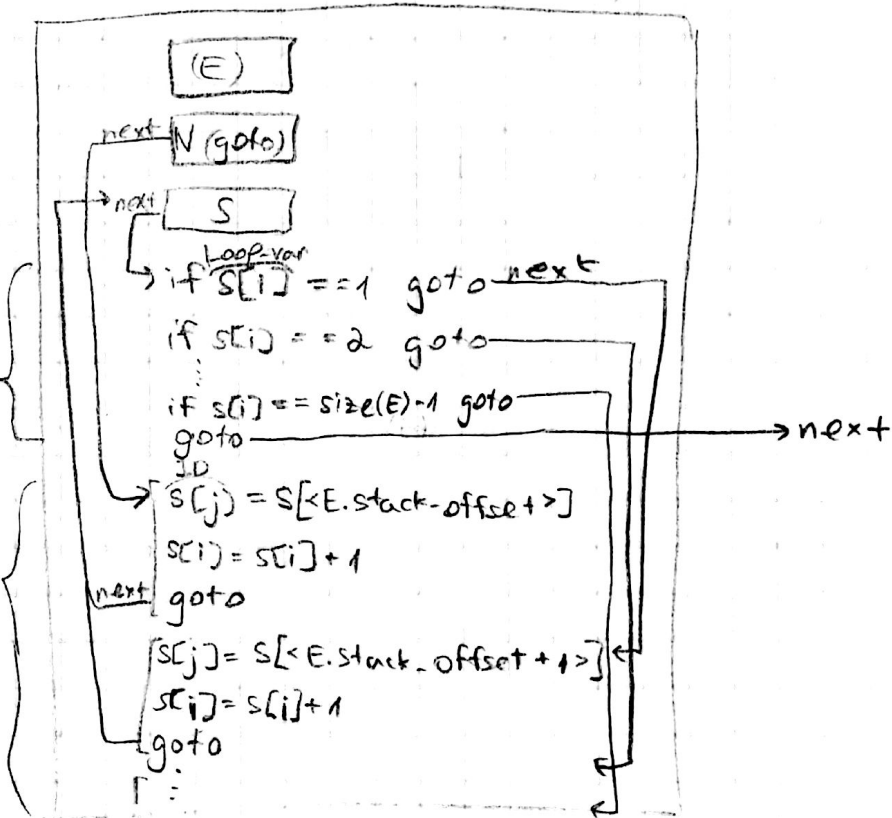 (E)
next N (goto)
next S
Loop-var
if S[i] == 1 goto next
if s[i] == 2 goto
⋮
if s[i] == size(E)-1 goto
goto → next
ID
S[j] = S[<E.stack-offset>]
s[i] = s[i] + 1
next goto
S[j] = S[<E.stack-offset + 1>]
s[i] = s[i] + 1
goto
⋮